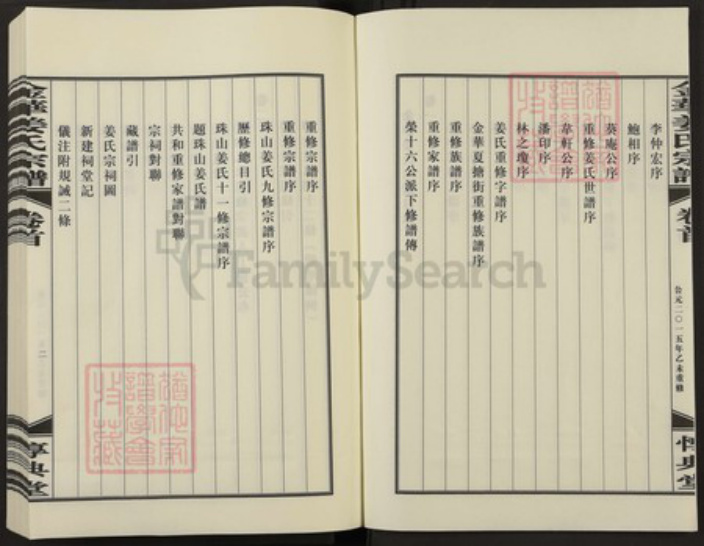 金華姜氏宗譜
卷首
公元二〇一五年乙未重修
惇典堂
李仲宏序
鮑相序
葵庵公序
重修姜氏世譜序
韋軒公序
潘印序
林之瓊序
姜氏重修字譜序
金華夏搶街重修族譜序
重修族譜序
重修家譜序
榮十六公派下修譜傳
重修宗譜序
重修宗譜序
珠山姜氏九修宗譜序
歷修總目引
珠山姜氏十一修宗譜序
題珠山姜氏譜
共和重修家譜對聯
宗祠對聯
藏譜引
姜氏宗祠圖
新建祠堂記
儀注附規誡二條
金華姜氏宗譜
卷首
二
惇典堂
FamilySearch